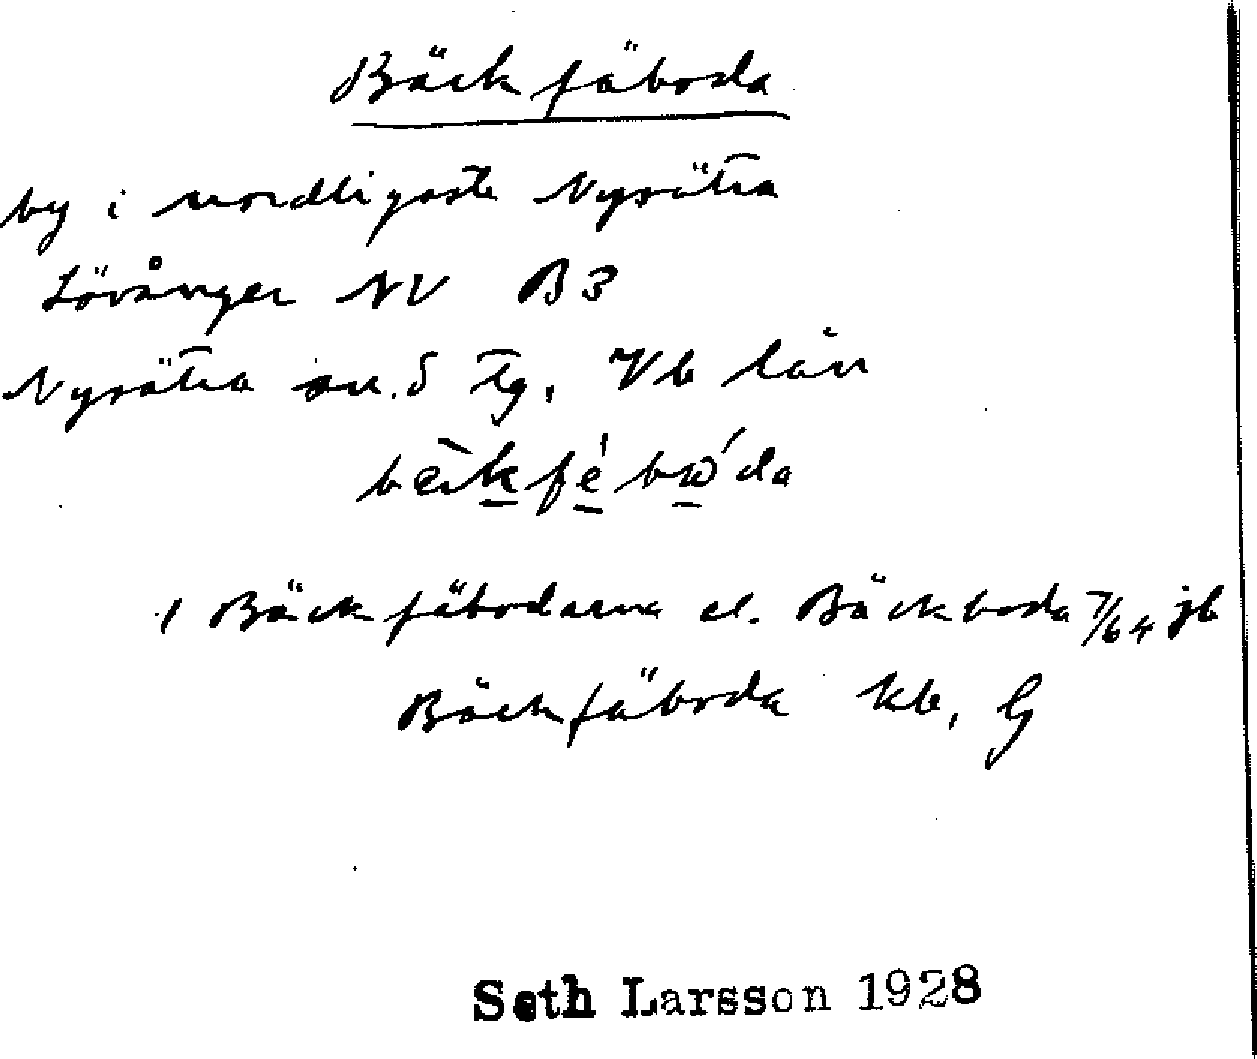 Bäckfäboda
by i nordligaste Nysätra
Lövånger NV B3
Nysätra sn. S Tg. Vb län
1 Bäckfäbodarna el. Bäckboda 7/64 jb
Bäckfäboda kb, G
Seth Larsson 1928